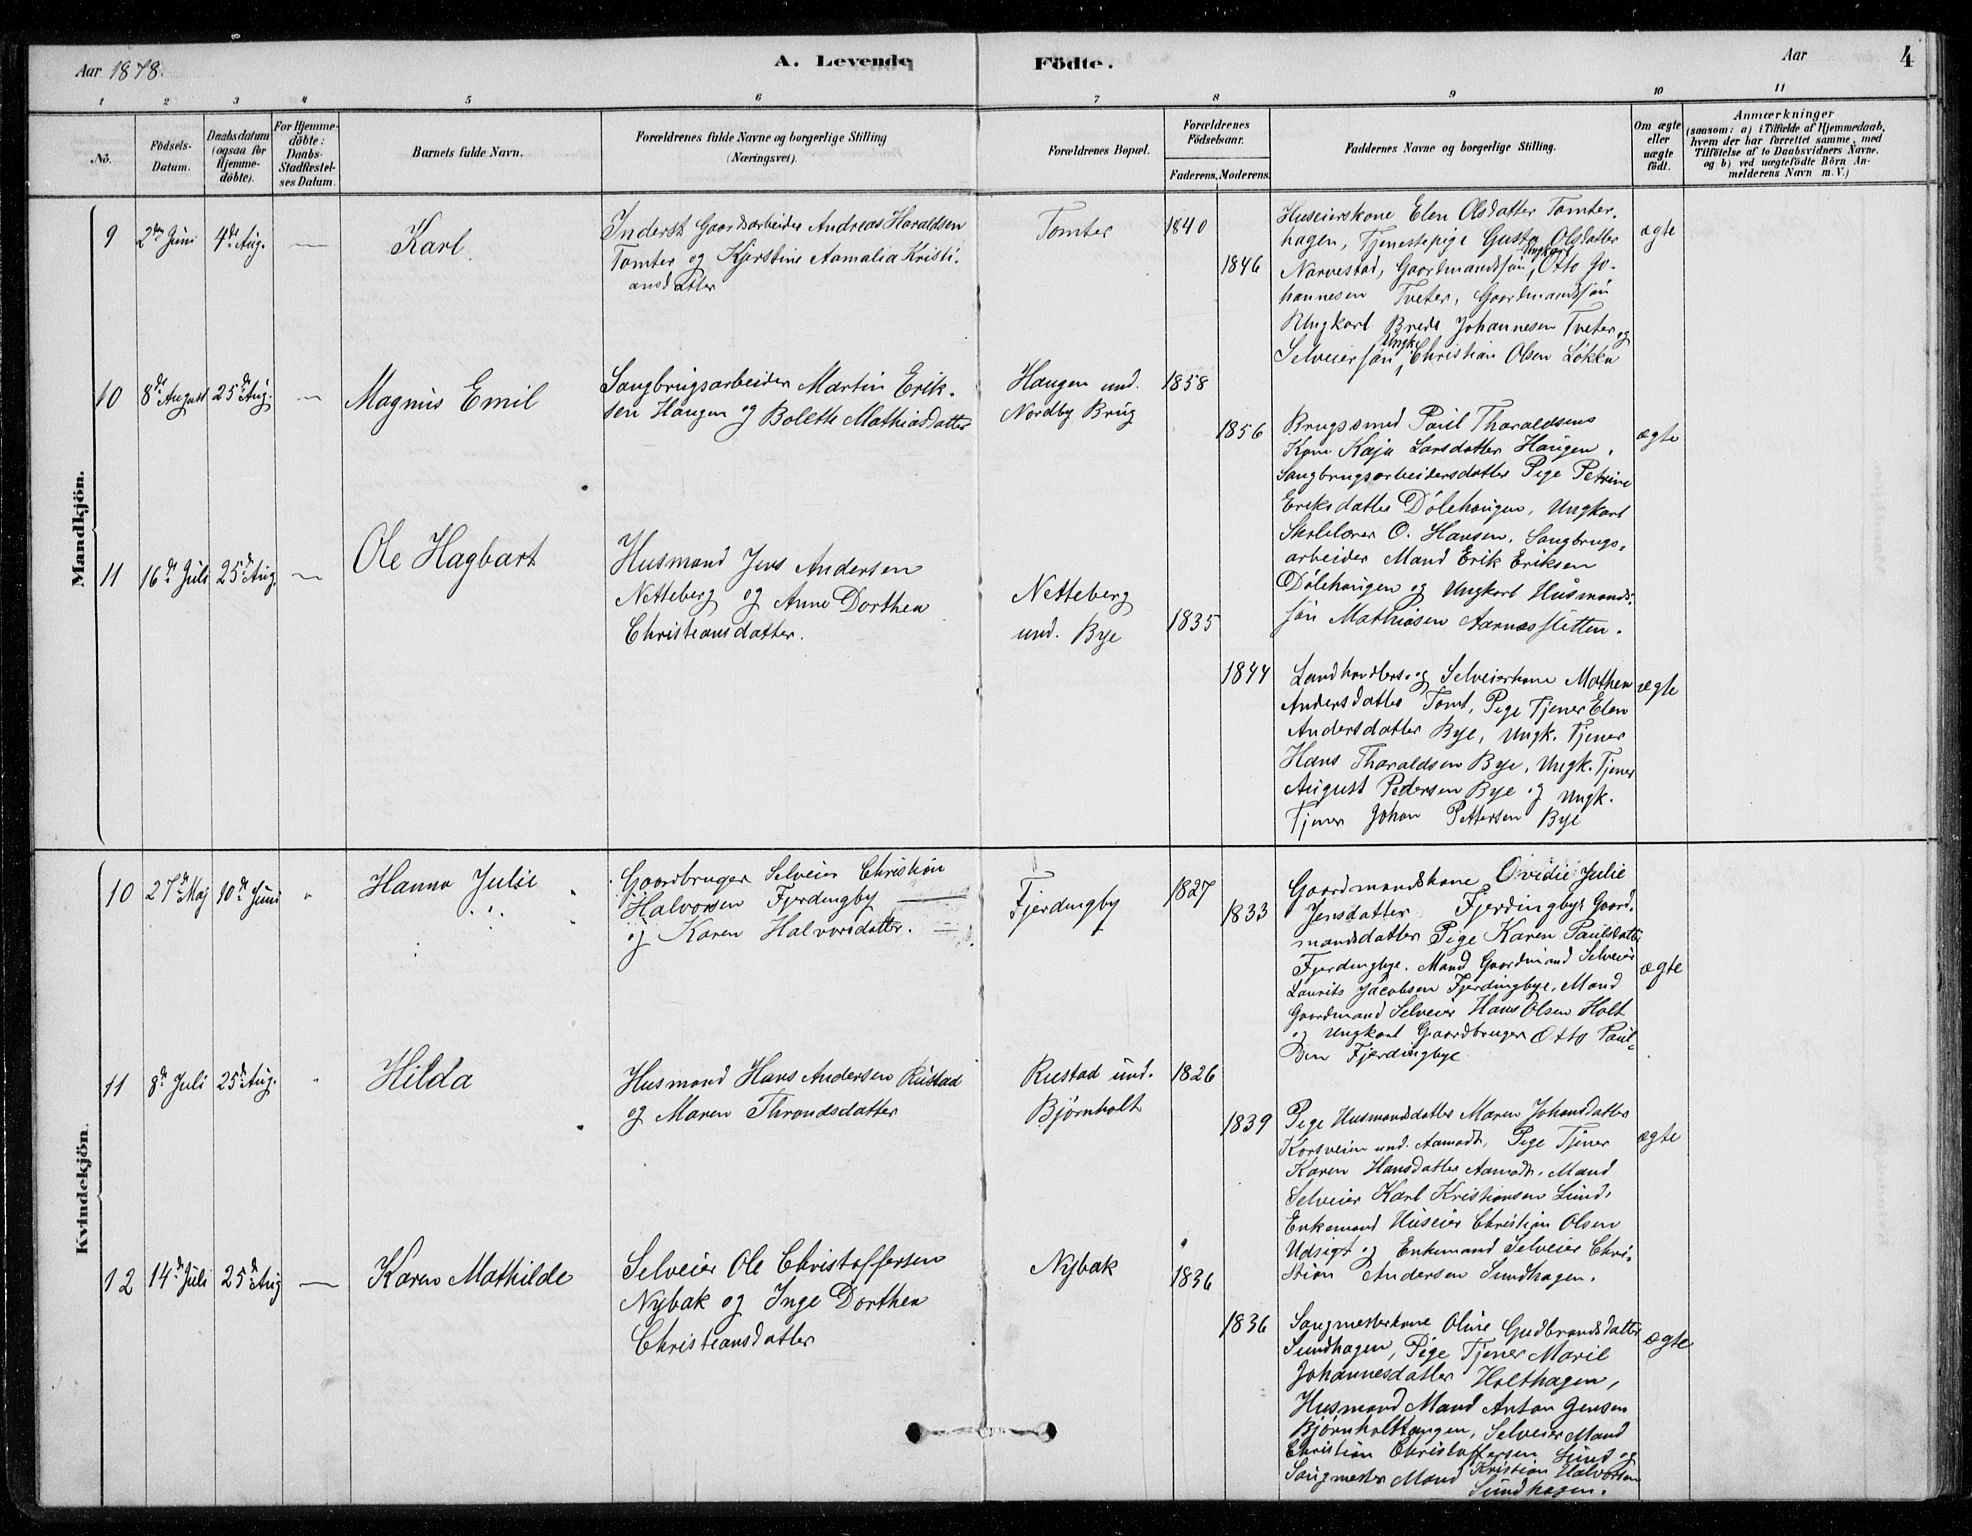 Aar 1878.
A. Levende Födte.
Aar
4
1 2 3 4 5 6 7 8 9 10 11
No.
Födsels-
Datum.
Daabsdatum
(ogsaa for
Hjemme-
döbte).
For Hjemme-
döbte:
Daabs-
Stadfæstel-
ses Datum.
Barnets fulde Navn.
Forældrenes fulde Navne og borgerlige Stilling
(Næringsvei).
Forældrenes Bopæl.
Forældrenes
Födselsaar.
Faderens. Moderens.
Faddernes Navne og borgerlige Stilling.
Om ægte
eller
uægte
født.
Anmærkninger
(saasom: a) i Tilfælde af Hjemmedaab,
hvem der har forrettet samme, med
Tilföielse af to Daabsvidners Navne.
og b) ved uægtefödte Börn An-
melderens Navn m. V.)
Mandkjön.
9
2den Juni
4de Aug.
Karl.
Inderst Gaardsarbeider Andreas Haraldsen
Tomter og Kjerstine Aamalia Kristi-
ansdatter
Tomter
1840
1846
Huseierskone Elen Olsdatter Tomter-
hagen, Tjenestepige Gusta Olsdatter
Narvestad, Gaardmandssøn, Ungkarl Otto Jo-
hannesen Tveter, Gaardmandssøn
Ungkarl Brede Johannesen Tveter og
Selveiersøn, Ungk. Christian Olsen Løkka
ægte
10
8de August
25de Aug.
Magnus Emil
Saugbrugsarbeider Martin Erik-
sen Haugen og Bolette Mathiasdatter
Haugen und.
Nordby Brug
1858
1856
Brugssmed Poul Tharaldsens
Kone Kaja Larsdatter Haugen,
Saugbrugsarbeidersdatter Pige Petrine
Eriksdatter Dølehaugen, Ungkarl
Skolelærer O. Hansen, Saugbrugs-
arbeider Mand Erik Eriksen
Dølehaugen og Ungkarl Husmands-
søn Mathisen Aarnæssletten.
ægte
11
16de Juli
25de Aug.
Ole Hagbart
Husmand Jens Andersen
Netteberg og Anne Dorthea
Christiansdatter.
Netteberg
und. Bye
1835
1844
Landhandlers- og Selveierkone Mathea
Andersdatter Tomt, Pige Tjener Elen
Andersdatter Bye, Ungk. Tjener
Hans Tharaldsen Bye, Ungk. Tjener
August Pedersen Bye og Ungk.
Tjener Johan Pettersen Bye
ægte
Kvindekjön.
10
27de Maj
10de Juni
Hanna Julie
Gaardbruger Selveier Christian
Halvorsen Fjerdingby
og Karen Halvorsdatter.
Fjerdingby
1827
1833
Gaardmandskone Ovidie Julie
Jensdatter Fjerdingby, Gaard-
mandsdatter Pige Karen Paulsdatter
Fjerdingbye. Mand Gaardmand Selveier
Laurits Jacobsen Fjerdingbye, Mand
Gaardmand Selveier Hans Olsen Holt
og Ungkarl Gaardbruger Otto Paul-
sen Fjerdingbye.
ægte
11
8de Juli
25de Aug.
Hilda
Husmand Hans Andersen Rustad
og Maren Throndsdatter
Rustad und.
Bjørnholt
1826
1839
Pige Husmandsdatter Maren Johansdatter
Korsveien und. Aamodt, Pige Tjener
Karen Hansdatter Aamodt, Mand
Selveier Karl Kristiansen Lund,
Enkemand Huseier Christian Olsen
Udsigt og Enkemand Selveier Chri-
stian Andersen Sundhagen.
ægte
12
14de Juli
25de Aug
Karen Mathilde
Selveier Ole Christoffersen
Nybak og Inge Dorthea
Christiansdatter
Nybak
1836
1836
Saugmesterkone Oline Gudbrandsdatter
Sundhagen, Pige Tjener Marie
Johannesdatter Holthagen,
Husmand Mand Anton Jensen
Bjørnholthaugen, Selveier Mand
Christian Christoffersen Lund og
Saugmester Mand Kristian Halvorsen
Sundhagen.
ægte